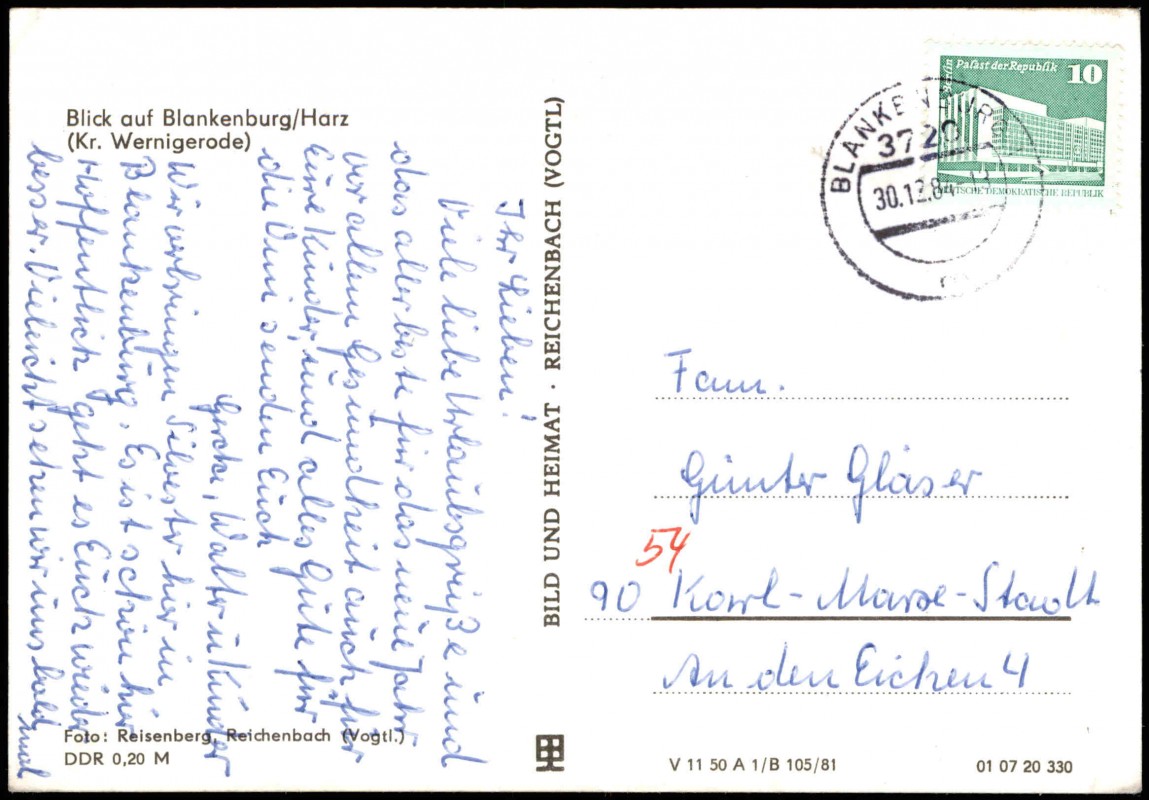 Blick auf Blankenburg/Harz
(Kr. Wernigerode)
Ihr Lieben!
Viele liebe Urlaubsgrüße und
das allerbeste für das neue Jahr
vor allem Gesundheit auch für
Eure Kinder, und alles Gute für
die Omi senden Euch
Waltr u Kinder
Wir verbringen Silvester hier in
Blankenburg. Es ist schön hier
Hoffentlich geht es Euch wieder
besser. Vieleicht sehen wir uns bald
mal
Foto: Reisenberg, Reichenbach (Vogtl.)
DDR 0,20 M
BILD UND HEIMAT · REICHENBACH (VOGTL)
Berlin
Palast der Republik
10
DEUTSCHE DEMOKRATISCHE REPUBLIK
BLANKENBURG
3720
30.12.84
Fam.
Günter Gläser
54
90 Karl-Marx-Stadt
An den Eichen 4
V 11 50 A 1/B 105/81
01 07 20 330